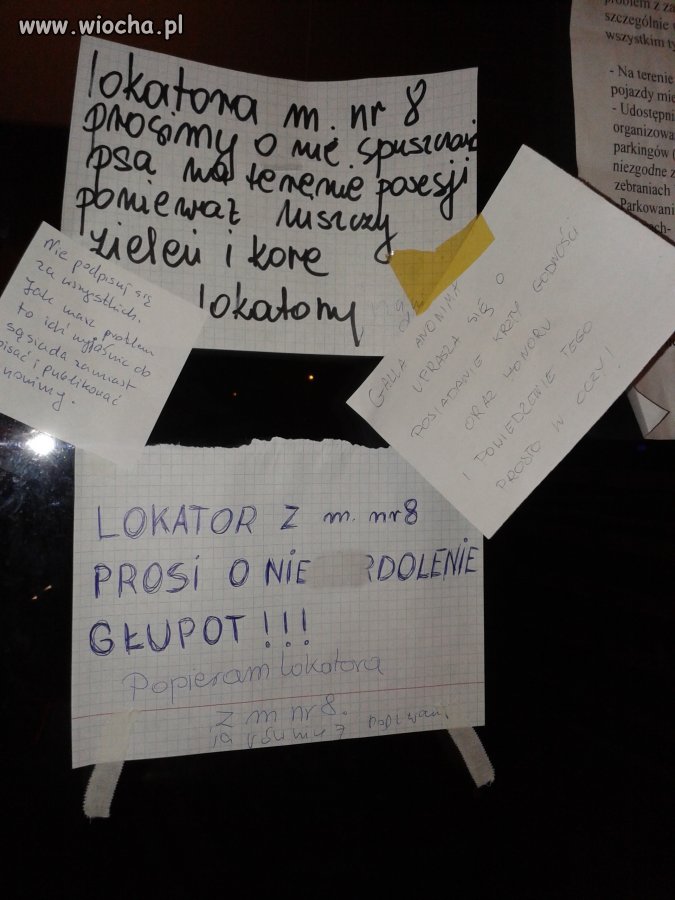 www.wiocha.pl
lokatora m. nr 8
prosimy o nie spuszczanie
psa na terenie posesji
ponieważ niszczy
zieleń i korę
lokatorzy
Nie podpisuj się
za wszystkich.
Jak masz problem
to idź wyjaśnić do
sąsiada zamiast
pisać i publikować
anonimy.
GALLA ANONIMA
UPRASZA SIĘ O
POSIADANIE KRZTY GODNOŚCI
ORAZ HONORU
I POWIEDZENIE TEGO
PROSTO W OCZY!
LOKATOR Z m. nr 8
PROSI O NIE RDOLENIE
GŁUPOT!!!
Popieram lokatora
z m nr 8.
problem z
szczególnie
wszystkim
- Na terenie
pojazdy
- Udostępni
organizowa
parkingów
niezgodne z
zebraniach
Parkowani